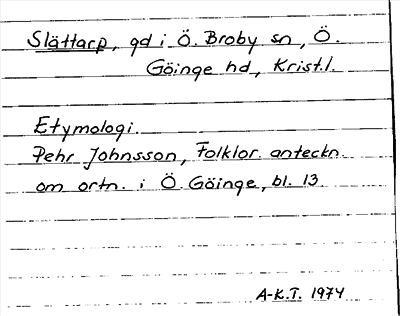 Slättarp, gd i Ö. Broby sn, Ö.
Göinge hd, Krist.l.
Etymologi.
Pehr Johnsson, Folklor. anteckn.
om ortn. i Ö. Göinge, bl. 13.
A-K.T. 1974